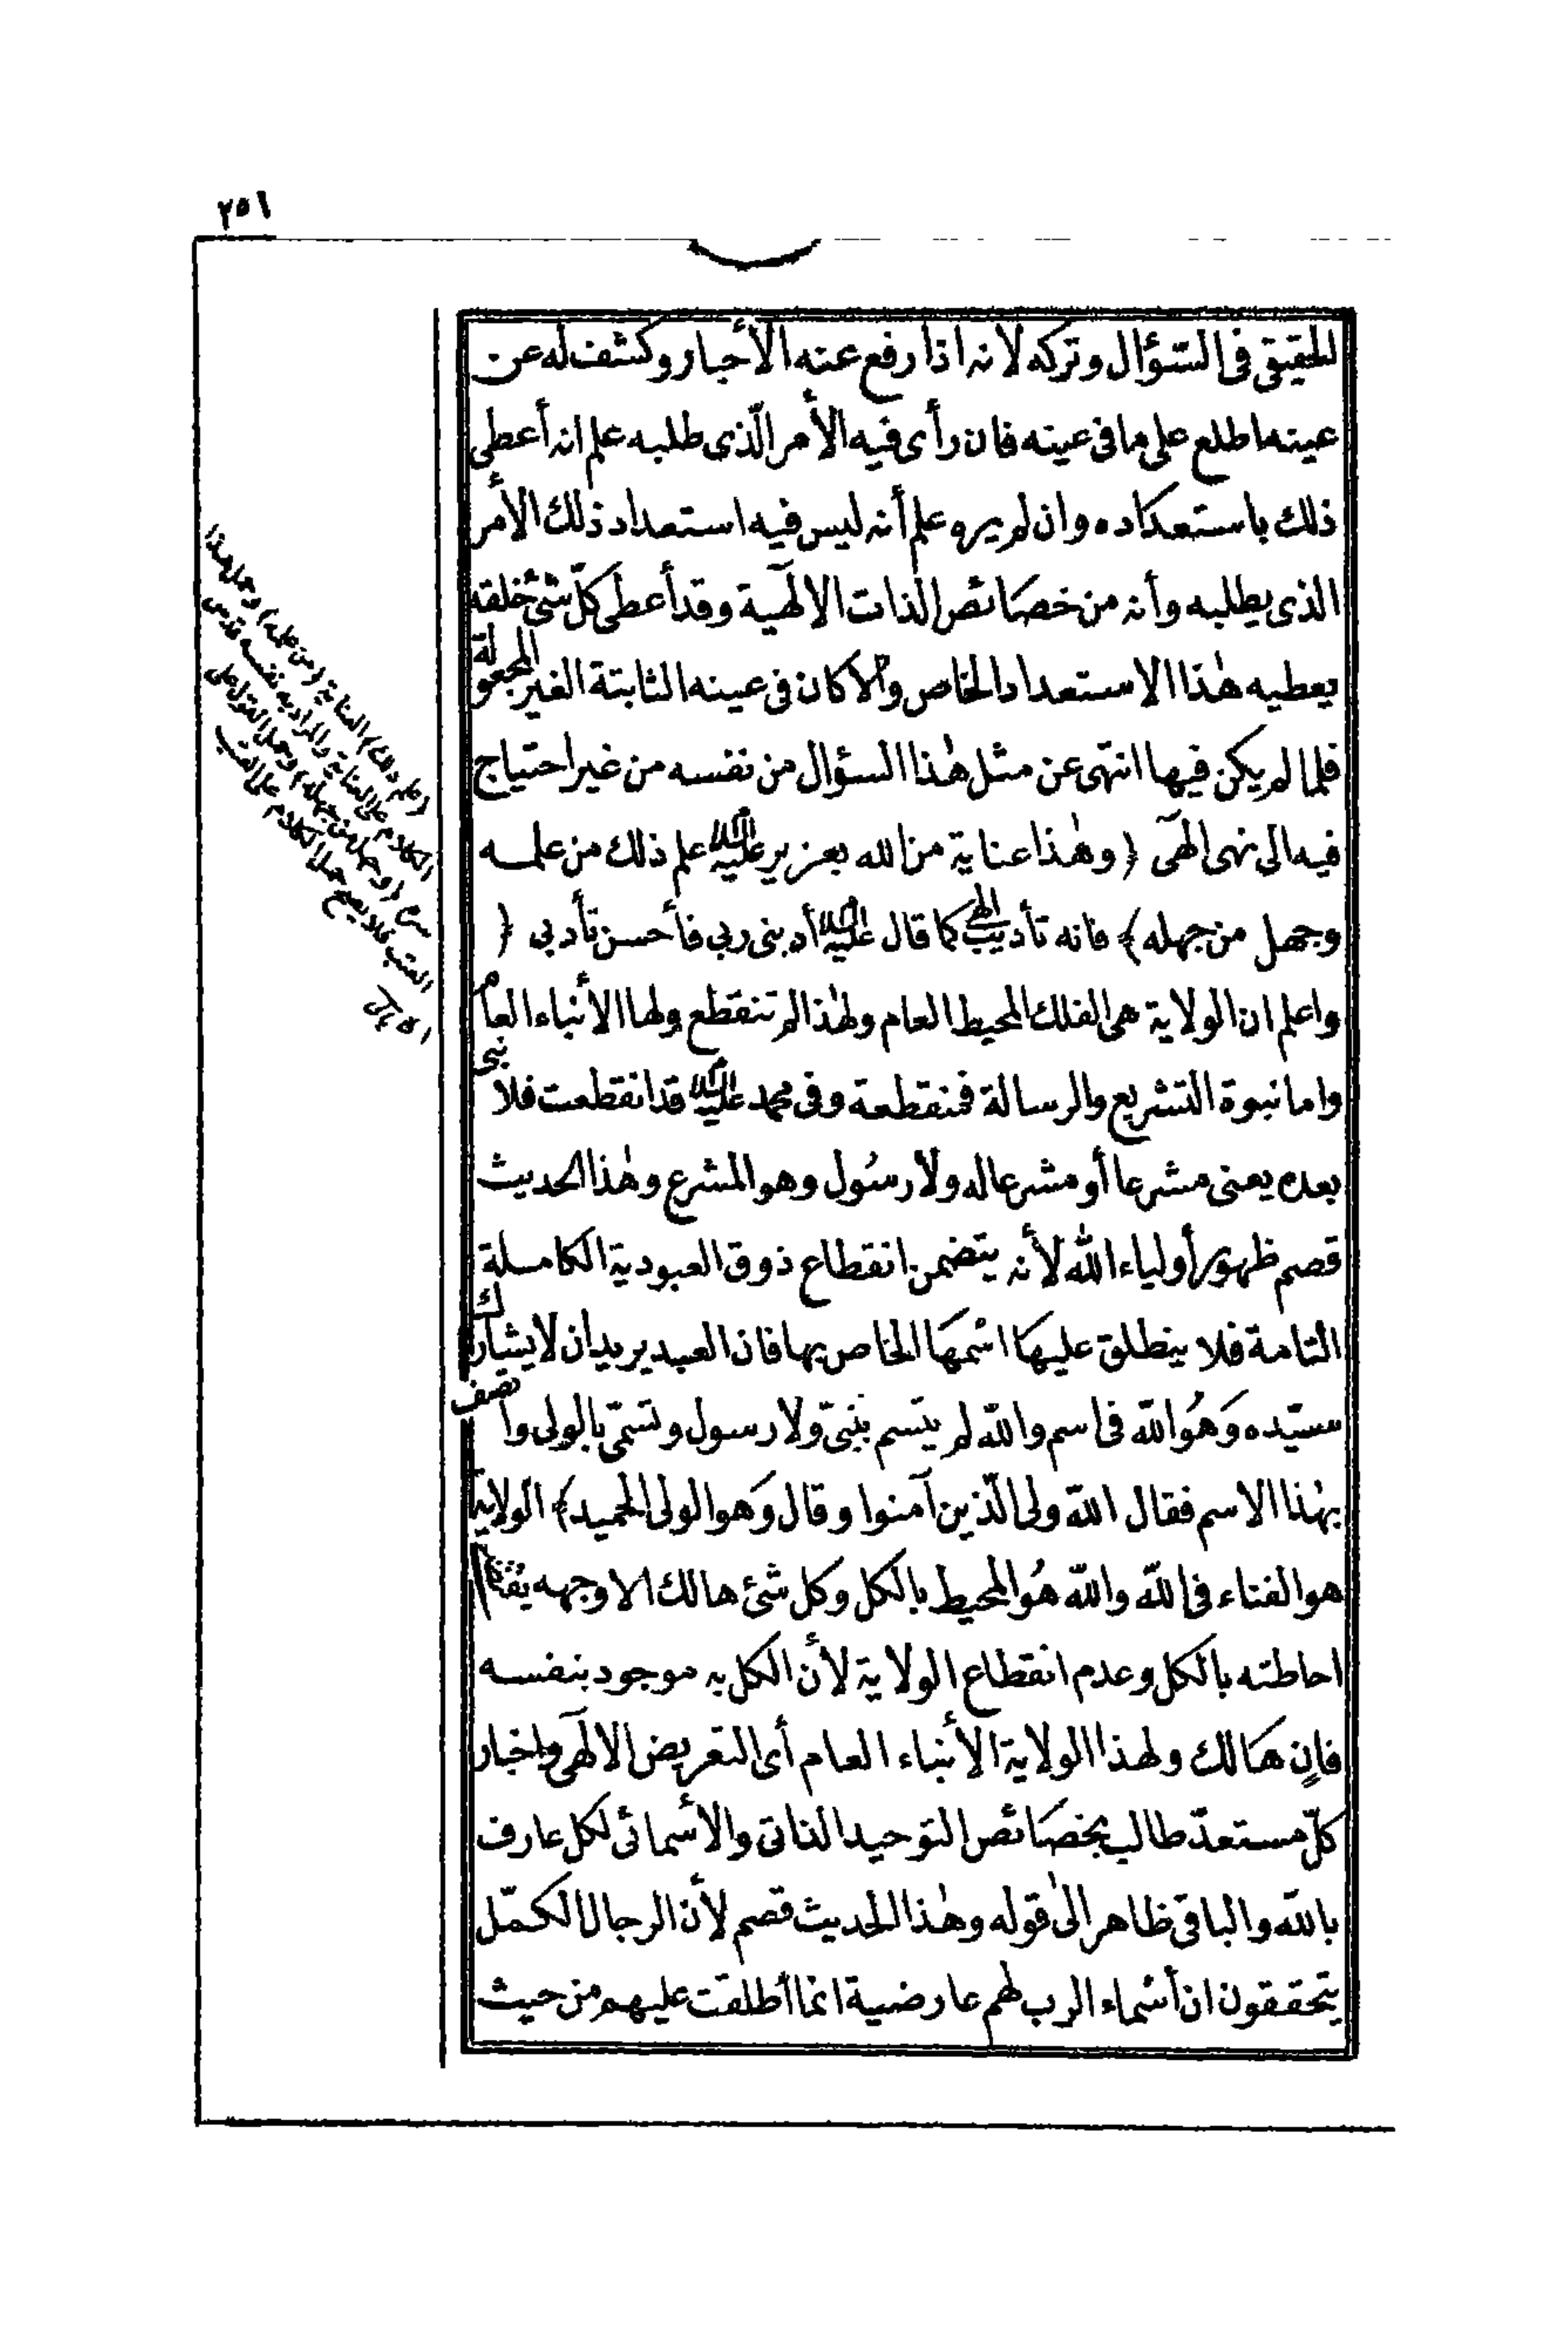 ٢٥١
الحقيقى فى السّؤال وتركه لانه اذا رفع عنه الأخبار وكشف له عن
عينه اطلع على ما فى عينه فان رأى فيه الأمر الّذى طلبه علم انه أعطى
ذلك باستعداده وان لم يره علم أنه ليس فيه استعداد ذلك الأمر
الذى يطلبه وأنه من خصائص الذات الالٓهية وقد أعطى كلّ شئ خلقه
يعطيه هٰذا الاستعداد الخاص والا كان فى عينه الثابتة الغير المجعولة
فلما لم يكن فيها انتهى عن مثل هٰذا السؤال من نفسه من غير احتياج
فيه الى نهى الٓهى ﴿ وهٰذا عناية من الله بعزير عليه السلام علم ذلك من علمه
وجهل من جهله ﴾ فانه تأديب الهى كما قال عليه السلام أدبنى ربى فأحسن تأدبى ﴿
واعلم ان الولاية هى الفلك المحيط العام ولهٰذا لم تنقطع ولها الأنباء العام
واما نبوة التشريع والرسالة فمنقطعة وفى محمد عليه السلام قد انقطعت فلا نبى
بعده يعنى مشرعا أو مشرعا له ولا رسول وهو المشرع وهٰذا الحديث
قصم ظهور أولياء الله لأنه يتضمن انقطاع ذوق العبودية الكاملة
التامة فلا ينطلق عليها اسمها الخاص بها فان العبد يريد ان لا يشارك
سيّده وهو الله فى اسم والله لم يتسم بنبىّ ولا رسول وتسمّى بالولى واتصف
بهٰذا الاسم فقال الله ولى الّذين آمنوا وقال وهو الولى الحميد ﴾ الولاية
هو الفناء فى الله والله هو المحيط بالكل وكل شئ هالك الا وجهه
احاطته بالكل وعدم انقطاع الولاية لأن الكل به موجود بنفسه
فانٍ هالك ولهذا الولاية الأنباء العام أى التعريض الالٓهى واخبار
كلّ مستعدّ طالب بخصائص التوحيد الذاتى والأسمائى لكل عارف
بالله والباقى ظاهر الىٰ قوله وهٰذا الحديث قصم لأن الرجال الكمّل
يتحققون ان أسماء الرب لهم عارضية انما أطلقت عليهم من حيث